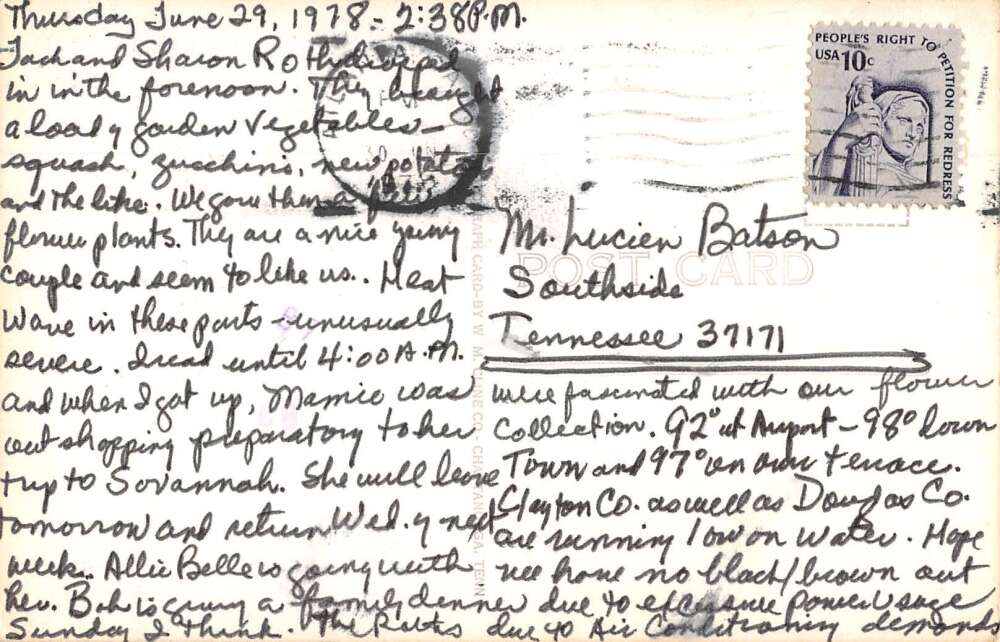 Thursday June 29, 1978 - 2:38 P.M.
Jack and Sharon Roth
in in the forenoon. They brought
a load of garden vegetables -
squash, zucchini, new potatoes
and the like. We gave them a few
flower plants. They are a nice young
couple and seem to like us. Heat
Wave in these parts - unusually
severe. I read until 4:00 A.M.
and when I got up, Mamie was
out shopping preparatory to her
trip to Savannah. She will leave
tomorrow and return Wed. of next
week. Allie Belle is going with
her. Bob is giving a family dinner
Sunday I think. The
were fascinated with our flower
Collection. 92° at Airport - 98° down
Town and 97° on our terrace.
Clayton Co. as well as Douglas Co.
are running low on water. Hope
we have no black/brown out
due to excessive power
due to Air Conditioning demands
PEOPLE'S RIGHT TO PETITION FOR REDRESS
USA 10c
POST CARD
Mr. Lucien Batson
Southside
Tennessee 37171